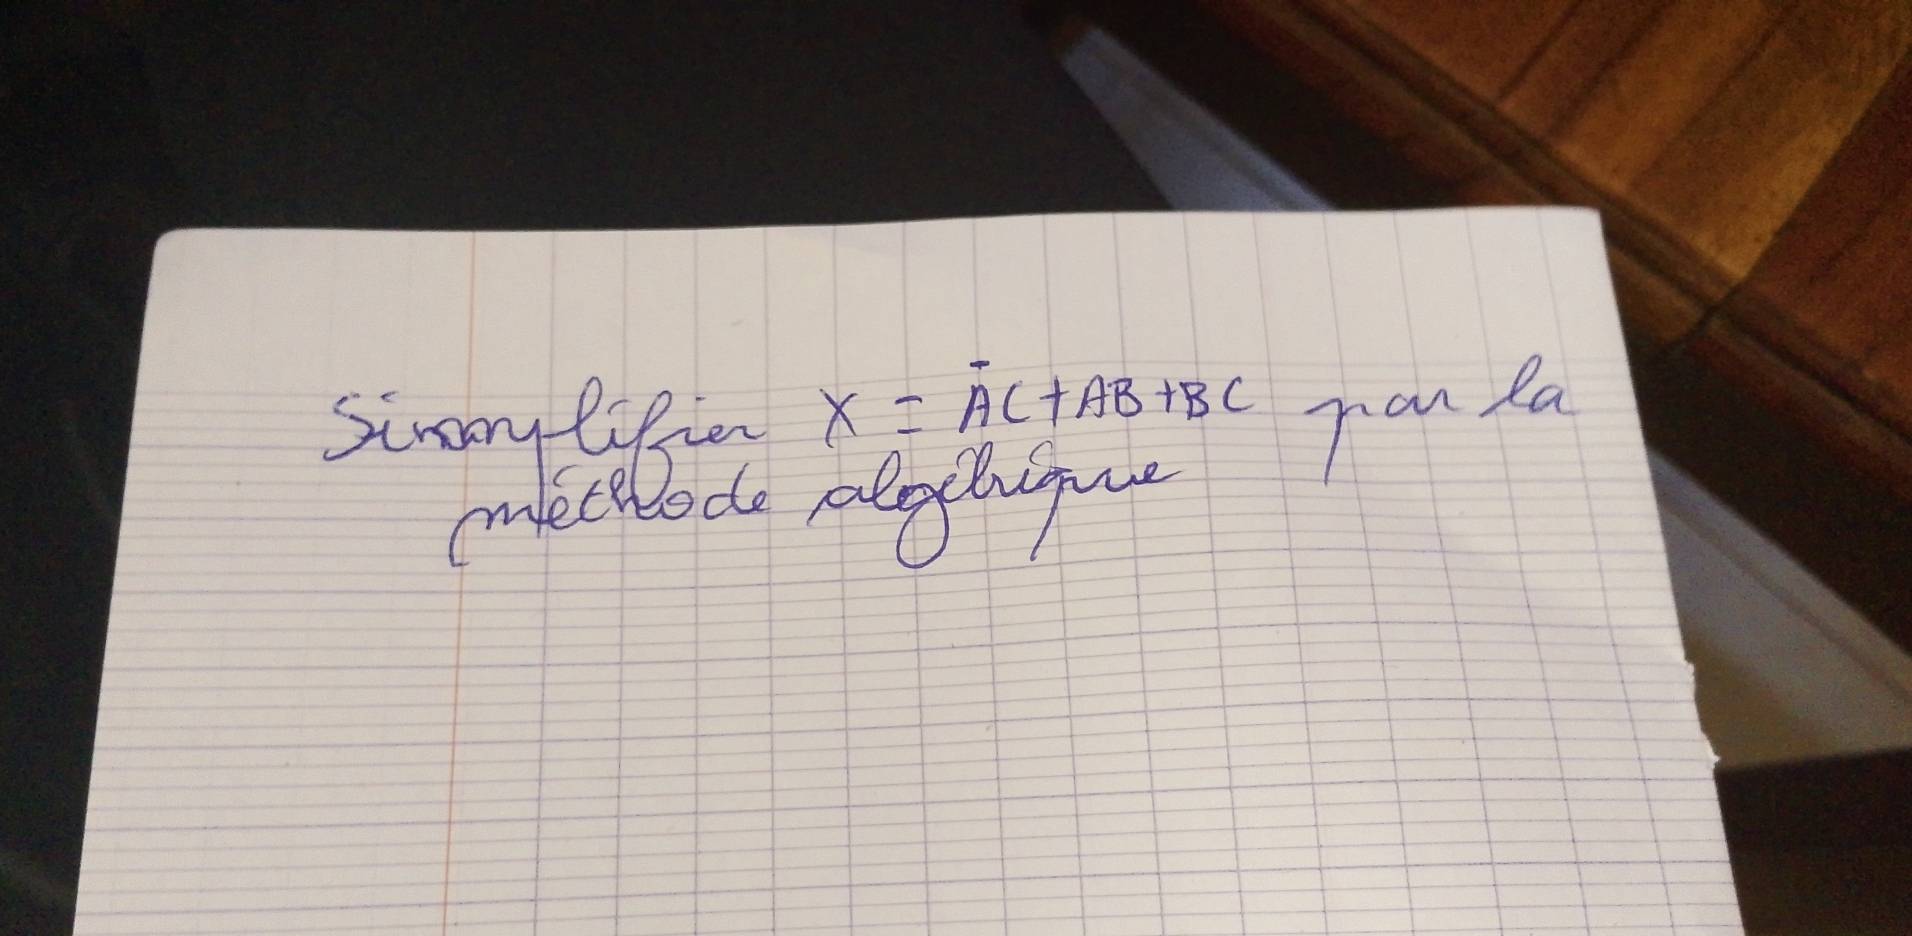 Simplifier X = ĀC+AB+BC par la
méthode algébrique